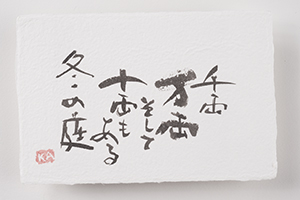 千両
万両
そして
十両も
ある
冬の庭
KA